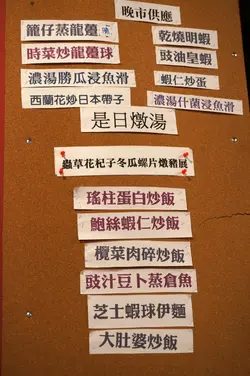 晚市供應
籠仔蒸龍躉
乾燒明蝦
時菜炒龍躉球
豉油皇蝦
濃湯勝瓜浸魚滑
蝦仁炒蛋
西蘭花炒日本帶子
濃湯什菌浸魚滑
是日燉湯
蟲草花杞子冬瓜螺片燉豬展
瑤柱蛋白炒飯
鮑絲蝦仁炒飯
欖菜肉碎炒飯
豉汁豆卜蒸倉魚
芝士蝦球伊麵
大肚婆炒飯